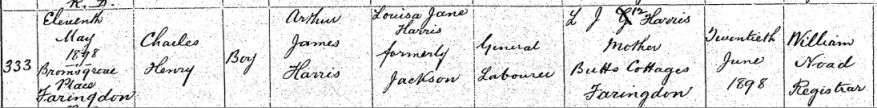 R. D.
333
Eleventh
May
1898
Bromsgrove
Place
Faringdon
Charles
Henry
Boy
Arthur
James
Harris
Louisa Jane
Harris
formerly
Jackson
General
Labourer
L J Harris
Mother
Butts Cottages
Faringdon
Twentieth
June
1898
William
Noad
Registrar